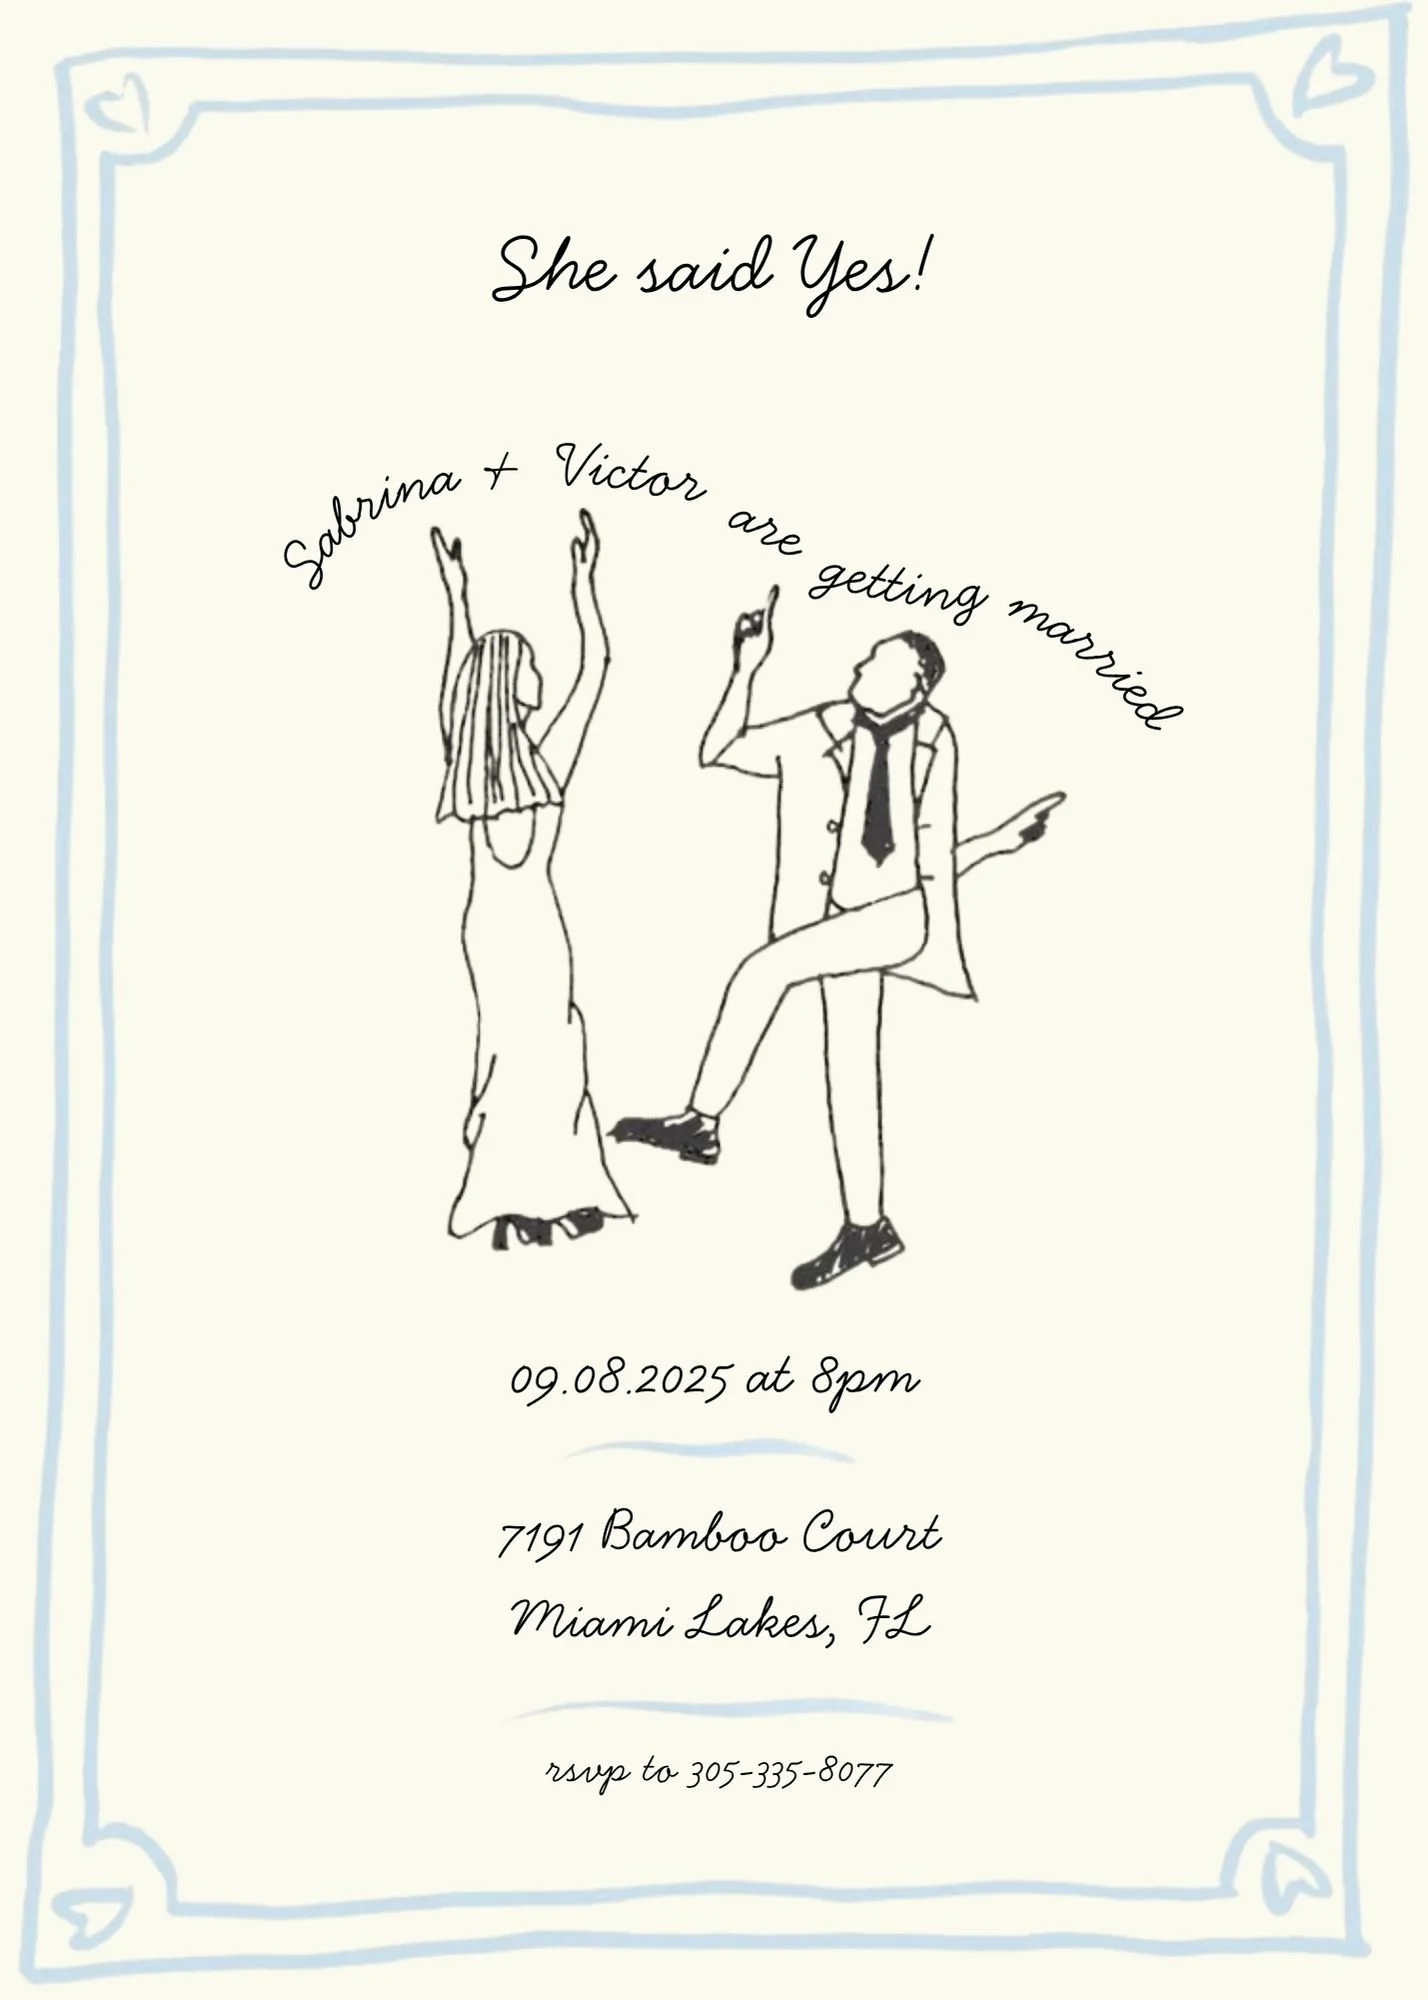 She said Yes!
Sabrina + Victor are getting married
09.08.2025 at 8pm
7191 Bamboo Court
Miami Lakes, FL
rsvp to 305-335-8077